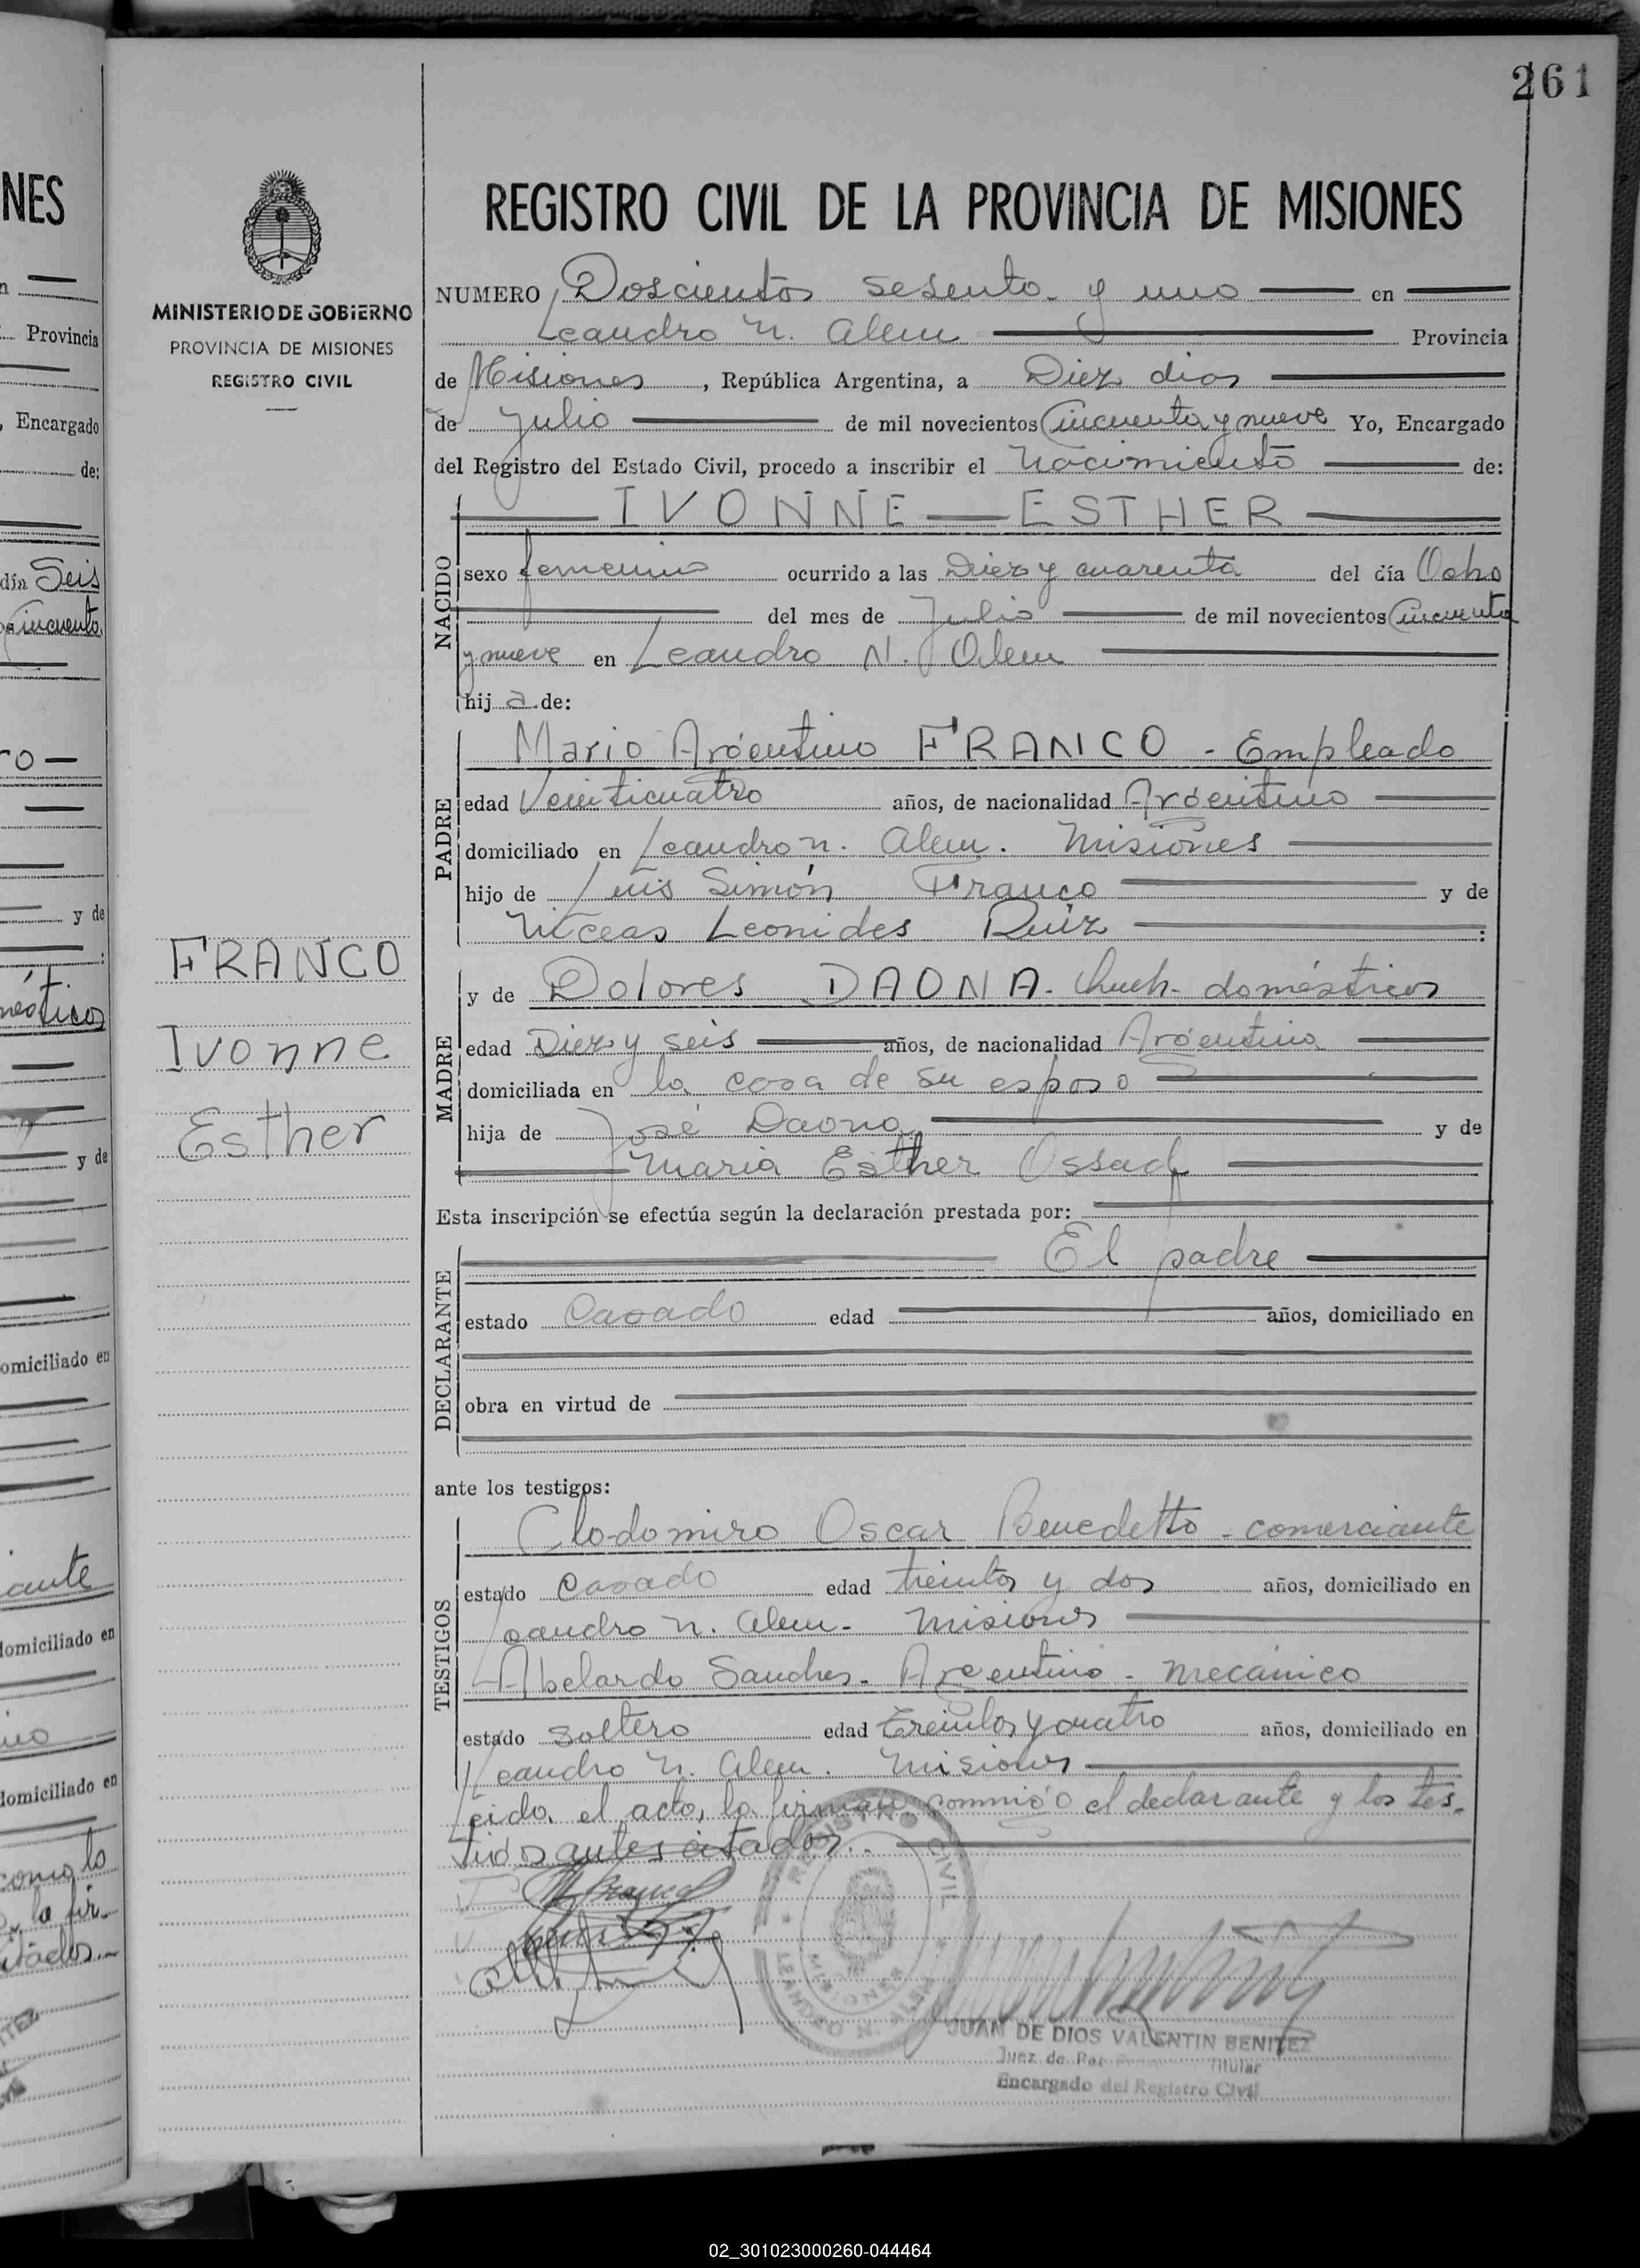 261
REGISTRO CIVIL DE LA PROVINCIA DE MISIONES
MINISTERIO DE GOBIERNO
PROVINCIA DE MISIONES
REGISTRO CIVIL
NUMERO Doscientos sesenta y uno en
Leandro N. Alem Provincia
de Misiones, República Argentina, a Diez dias
de Julio de mil novecientos Cincuenta y nueve Yo, Encargado
del Registro del Estado Civil, procedo a inscribir el Nacimiento de:
IVONNE ESTHER
NACIDO
sexo femenino ocurrido a las Diez y cuarenta del día Ocho
del mes de Julio de mil novecientos Cincuenta
y nueve en Leandro N. Alem
hija de:
PADRE
Mario Argentino FRANCO - Empleado
edad Veinticuatro años, de nacionalidad Argentino
domiciliado en Leandro N. Alem. Misiones
hijo de Luis Simón Franco y de
Niceas Leonides Ruiz :
FRANCO
Ivonne
Esther
MADRE
y de Dolores DAONA. Queh. domésticos
edad Diez y seis años, de nacionalidad Argentina
domiciliada en la casa de su esposo
hija de José Daona y de
Maria Esther Ossad
Esta inscripción se efectúa según la declaración prestada por:
DECLARANTE
El padre
estado Casado edad años, domiciliado en
obra en virtud de
ante los testigos:
TESTIGOS
Clodomiro Oscar Benedetto - comerciante
estado Casado edad treinta y dos años, domiciliado en
Leandro N. Alem - Misiones
Abelardo Sanches - Argentino - mecánico
estado soltero edad treinta y cuatro años, domiciliado en
Leandro N. Alem. Misiones
Leida el acto, la firman conmigo el declarante y los tes-
tigos antes citados.
REGISTRO CIVIL
MISIONES
LEANDRO N. ALEM
JUAN DE DIOS VALENTIN BENITEZ
Juez de Paz Titular
Encargado del Registro Civil
NES
Provincia
Encargado
de:
día Seis
Cincuenta
y de
y de
domiciliado en
domiciliado en
domiciliado en
como lo
la fir-
citados.-
02_301023000260-044464